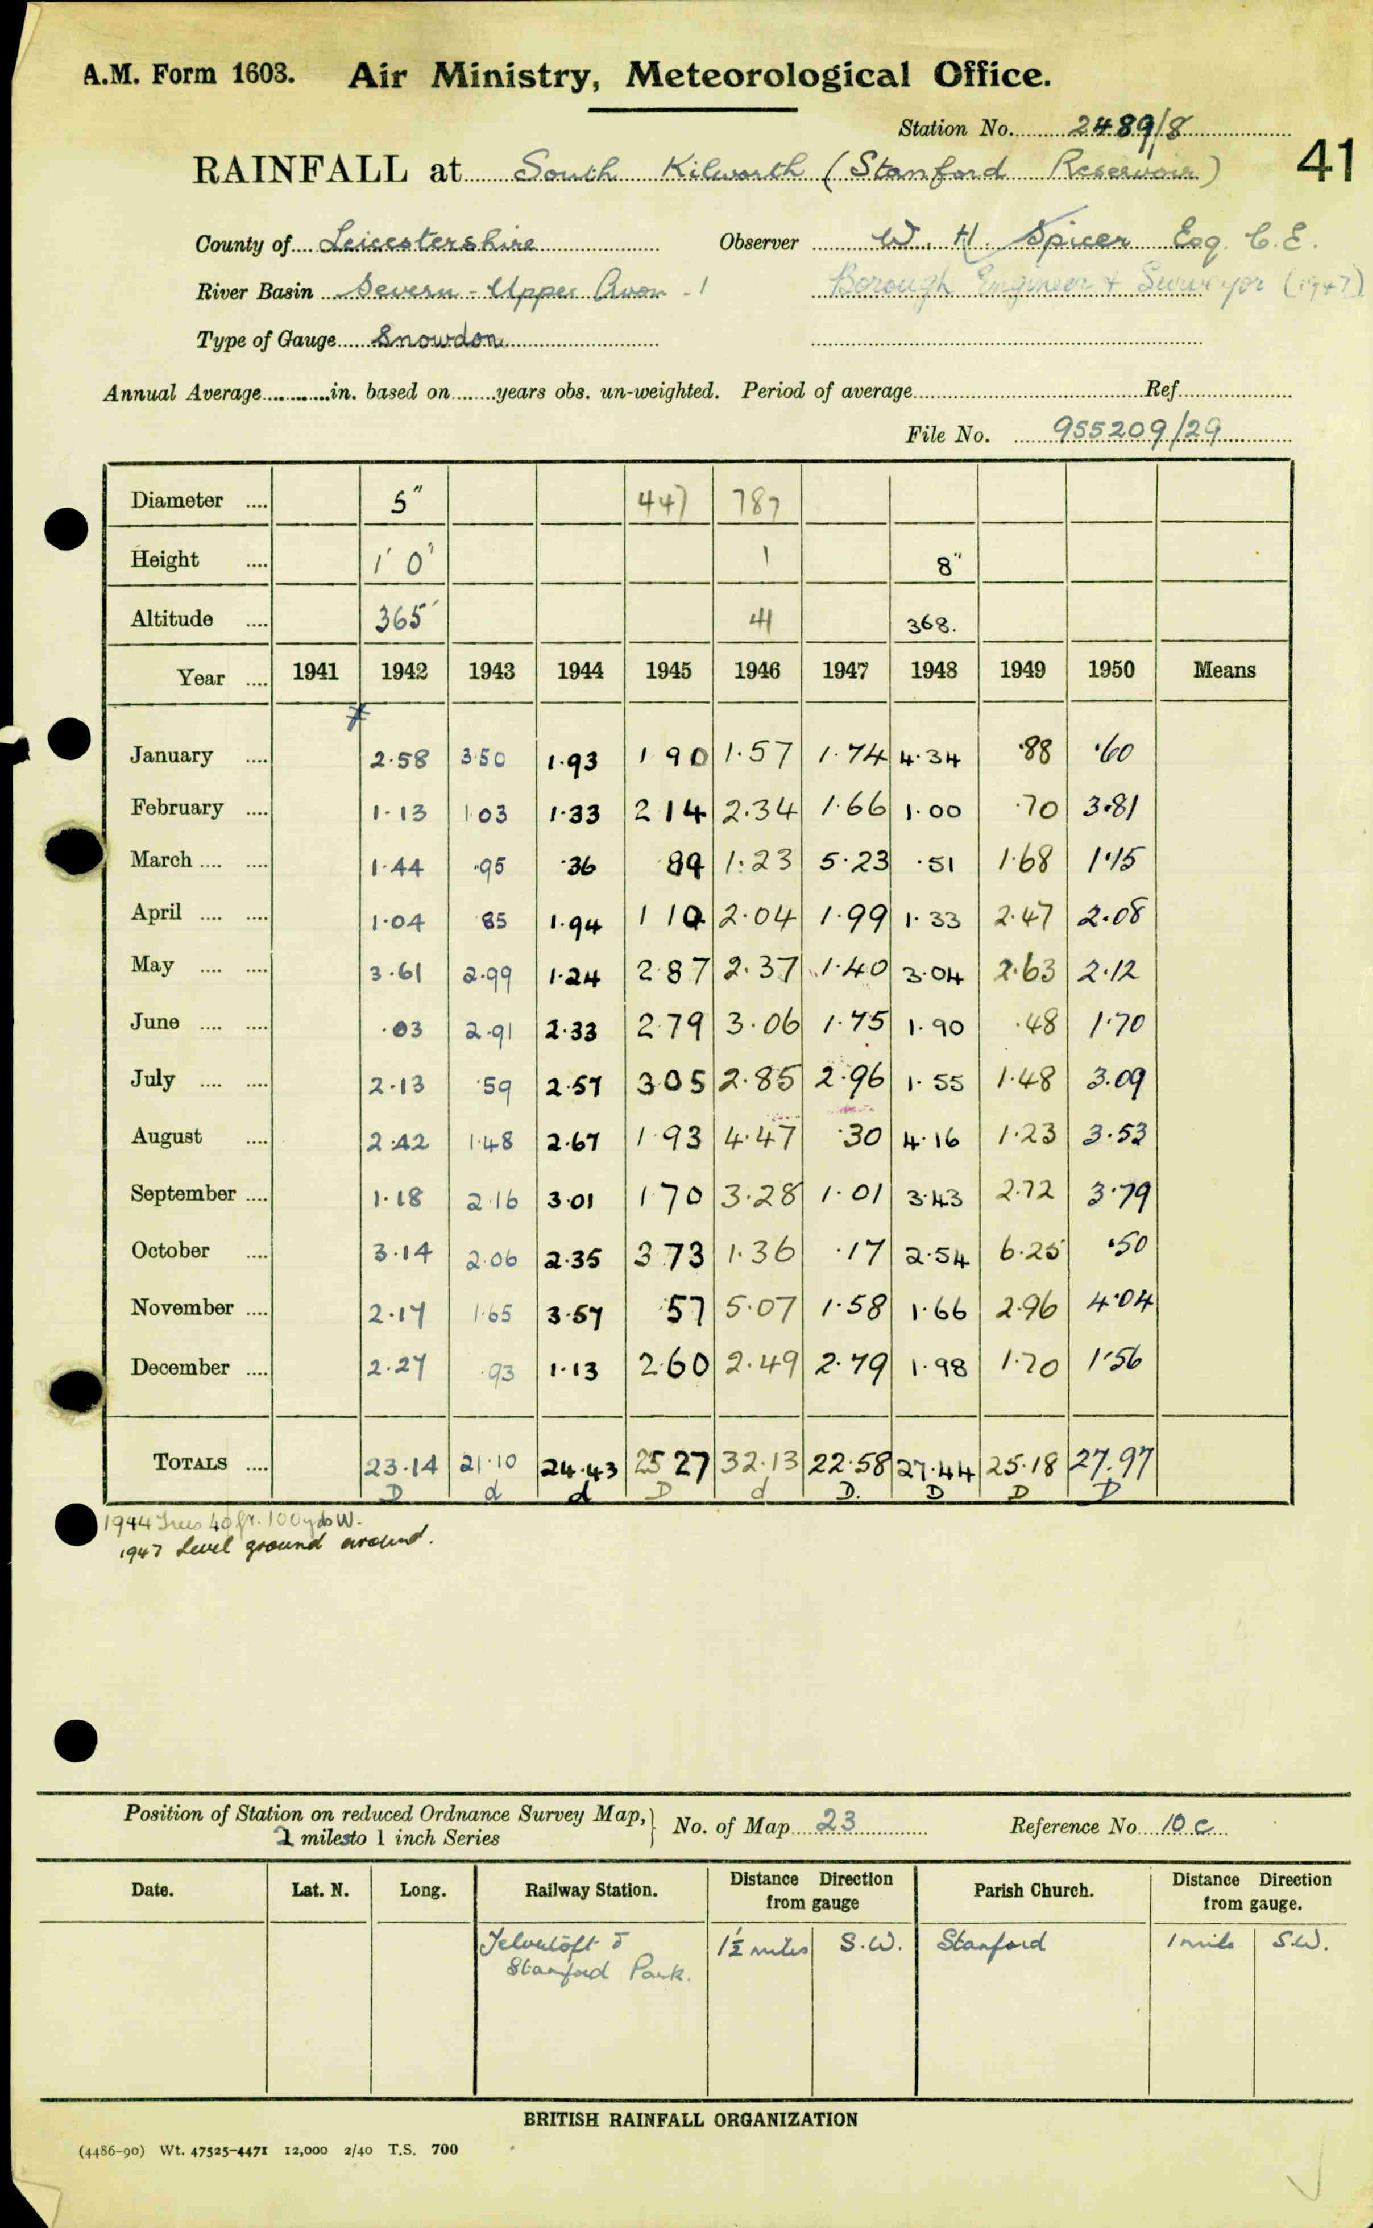 A.M. Form 1603. Air Ministry, Meteorological Office.
Station No. 2489/8
RAINFALL at South Kilworth (Stanford Reservoir) 41
County of Leicestershire Observer W. H. Spicer Esq. C.E.
River Basin Severn - Upper Avon - 1 Borough Engineer + Surveyor (1947)
Type of Gauge Snowdon
Annual Average in. based on years obs. un-weighted. Period of average Ref
File No. 955209/29
Diameter 5" 447 787
Height 1' 0" 1 8"
Altitude 365' 41 368.
Year 1941 1942 1943 1944 1945 1946 1947 1948 1949 1950 Means
January 2.58 3.50 1.93 1 90 1.57 1.74 4.34 .88 .60
February 1.13 1 03 1.33 2 14 2.34 1.66 1.00 .70 3.81
March 1.44 .95 .36 89 1.23 5.23 .51 1.68 1.15
April 1.04 85 1.94 1 10 2.04 1.99 1.33 2.47 2.08
May 3.61 2.99 1.24 2 87 2.37 1.40 3.04 2.63 2.12
June .03 2.91 2.33 2 79 3.06 1.75 1.90 .48 1.70
July 2.13 .59 2.57 3 05 2.85 2.96 1.55 1.48 3.09
August 2.42 1.48 2.67 1 93 4.47 .30 4.16 1.23 3.53
September 1.18 2 16 3.01 1 70 3.28 1.01 3.43 2.72 3.79
October 3.14 2.06 2.35 3 73 1.36 .17 2.54 6.25 .50
November 2.17 1.65 3.57 57 5.07 1.58 1.66 2.96 4.04
December 2.27 .93 1.13 2 60 2.49 2.79 1.98 1.70 1.56
TOTALS 23.14 21.10 24.43 25 27 32.13 22.58 27.44 25.18 27.97
D d d D d D. D D D
1944 Trees 40 ft. 100 yds W.
1947 Level ground around.
Position of Station on reduced Ordnance Survey Map, No. of Map 23 Reference No 10 c
2 miles to 1 inch Series
Date. Lat. N. Long. Railway Station. Distance Direction from gauge Parish Church. Distance Direction from gauge.
Yelvertoft & 1½ miles S.W. Stanford 1 mile S.W.
Stanford Park.
BRITISH RAINFALL ORGANIZATION
(4486-90) Wt. 47525-4471 12,000 2/40 T.S. 700